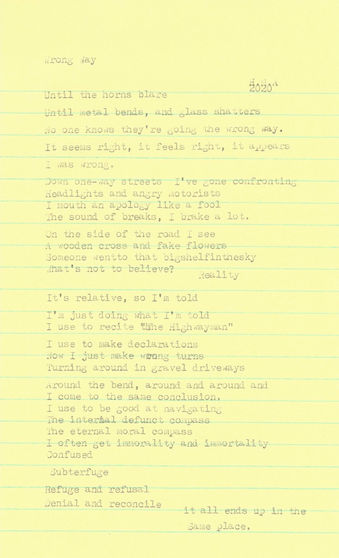 Wrong Way
2020
Until the horns blare
Until metal bends, and glass shatters
No one knows they're going the wrong way.
It seems right, it feels right, it appears
I was wrong.
Down one-way streets I've gone confronting
Headlights and angry motorists
I mouth an apology like a fool
The sound of breaks, I brake a lot.
On the side of the road I see
A wooden cross and fake flowers
Someone wentto that bigshelfinthesky
What's not to believe?
Reality
It's relative, so I'm told
I'm just doing what I'm told
I use to recite "The Highwayman"
I use to make declarations
Now I just make wrong turns
Turning around in gravel driveways
Around the bend, around and around and
I come to the same conclusion.
I use to be good at navigating
The internal defunct compass
The eternal moral compass
I often get immorality and immortality
Confused
Subterfuge
Refuge and refusal
Denial and reconcile
it all ends up in the
Same place.